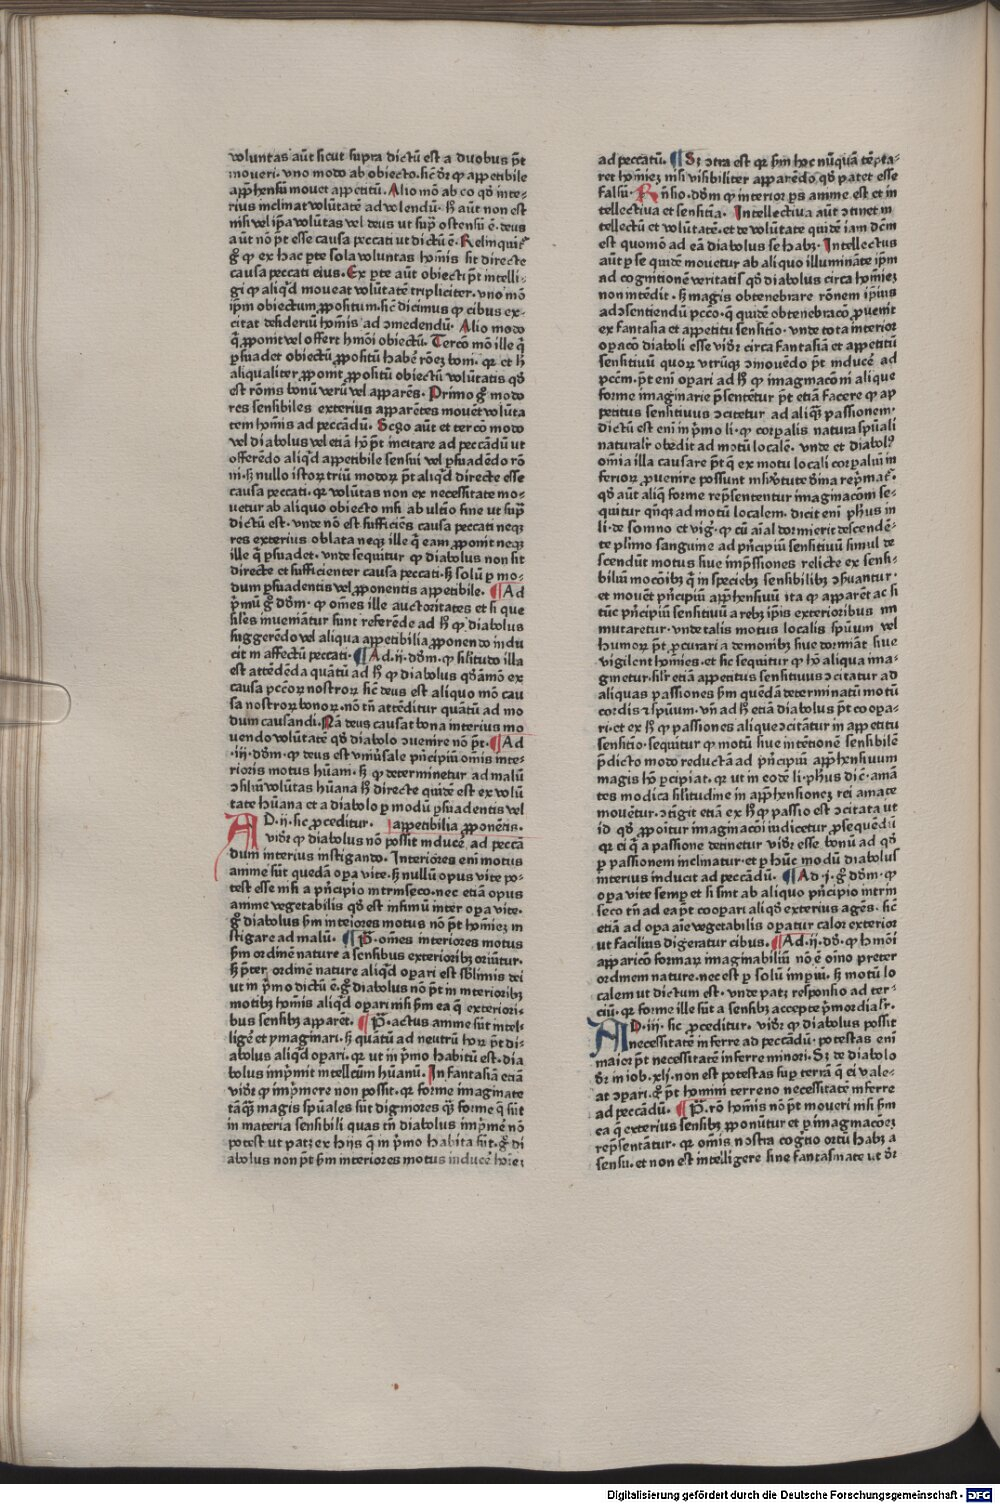 voluntas aūt sicut supra dictū est a duobus p̄t
moueri. vno modo ab obiecto. sic̄ dr̄ ꝙ appetibile
app̄hensū mouet appetitū. Alio mō ab eo qd̄ inte⸗
rius inclinat volūtatē ad volendū. H̄ aūt non est
nisi vel ip̄a volūtas vel deus ut sup̄ ostensū ē. deus
aūt nō p̄t esse causa peccati ut dictū ē. Relinquit᷑
g̊ ꝙ ex hac ꝑte sola voluntas hoīnis sit directe
causa peccati eius. Ex ꝑte aūt obiecti p̄t intelli⸗
gi ꝙ aliqd̄ moueat volūtatē tripliciter. vno mō
ip̄m obiectum ꝓpositum. sic̄ dicimus ꝙ cibus ex⸗
citat desideriū hoīnis ad ɔmedendū. Alio modo
q̄ ꝓponit vel offert hmōi obiectū. Tercō mō ille q̄
ꝑsuadet obiectū ꝓpositū habē rōeꝫ boni. qr et h̄
aliqualiter ꝓponit ꝓpositū obiectū volūtatis qd̄
est rōnis bonū verū vel apparēs. Primo g̊ modo
res sensibiles exterius apparētes mouēt volūta
tem hoīnis ad peccādū. Scd̄o aūt et tercō modo
vel diabolus vel etiā hō p̄t incitare ad peccādū ut
offerēdo aliqd̄ appetibile sensui vel ꝑsuadēdo rō
ni. sꝫ nullo istoꝝ triū modoꝝ p̄t aliqd̄ directe esse
causa peccati. qr volūtas non ex necessitate mo⸗
uetur ab aliquo obiecto nisi ab ultīo fine ut sup̄
dictū est. vnde nō est sufficiēs causa peccati neqꝫ
res exterius oblata neqꝫ ille q̄ eam ꝓponit neqꝫ
ille q̄ ꝑsuadet. vnde sequitur ꝙ diabolus non sit
directe et sufficienter causa peccati. sꝫ solū ꝑ mo⸗
dum ꝑsuadentis vel ꝓponentis appetibile. ¶ Ad
p̄mū g̊ dd̄m. ꝙ om̄es ille auctoritates et si que
siles inueniātur sunt referēde ad h̄ ꝙ diabolus
suggerēdo vel aliqua appetibilia ꝓponendo indu
cit in affectū peccati. ¶ Ad .ii. dd̄m. ꝙ silitudo illa
est attēdēda quātū ad h̄ ꝙ diabolus qd̄āmō ex
causa pccōꝝ nostroꝝ sic̄ deus est aliquo mō cau
sa nostroꝝ bonoꝝ. nō tn̄ attēditur quātū ad mo
dum causandi. Nā deus causat bona interius mo
uendo volūtatē qd̄ diabolo ɔuenire nō p̄t. ¶ Ad
.iii. dd̄m. ꝙ deus est vniūsale pn̄cipiū om̄is inte⸗
rioris motus hūani. sꝫ ꝙ determinetur ad malū
ɔsiliū volūtas hūana h̄ directe quidē est ex volū
tate hūana et a diabolo ꝑ modū ꝑsuadentis vel
AD .ii. sic ꝓceditur. appetibilia ꝓponētis.
vidr̄ ꝙ diabolus nō possit inducē ad peccā
dum interius instigando. Interiores eni motus
anime sūt quedā oꝑa vite. sꝫ nullū opus vite po⸗
test esse nisi a pn̄cipio intrinseco. nec etiā opus
anime vegetabilis qd̄ est infimū inter oꝑa vite.
g̊ diabolus s̄m inteiores motus nō p̄t hoīneꝫ in
stigare ad malū. ¶ P̄. om̄es interiores motus
s̄m ordinē nature a sensibus exterioribꝫ oriūtur.
sꝫ p̄ter ordinē nature aliqd̄ oꝑari est sʒlimis dei
ut in p̄mo dictū ē. g̊ diabolus nō p̄t in interioribꝫ
motibꝫ hoīnis aliqd̄ oꝑari nisi s̄m ea q̄ exteriori⸗
bus sensibꝫ apparēt. ¶ P̄. actus anime sūt intel⸗
ligē et ymaginari. sꝫ quātū ad neutrū hoꝝ p̄t di⸗
abolus aliqd̄ oꝑari. qr ut in p̄mo habitū est. dia
bolus imp̄mit intellctum hūanū. In fantasiā etiā
vidr̄ ꝙ imp̄mere non possit. qr forme imaginate
tāqꝫ magis spūales sūt digniores qꝫ forme q̄ sūt
in materia sensibili quas tn̄ diabolus imp̄me nō
potest ut patꝫ ex hijs q̄ in p̄mo habita sūt. g̊ di
abolus non p̄t s̄m interiores motus inducē hoīeꝫ
ad peccatū. ¶ Sꝫ ɔtra est qr s̄m hoc nūquā tēpta⸗
ret hoīneꝫ nisi visibiliter apparēdo qd̄ patet esse
falsū. Rn̄sio. dd̄m ꝙ interior ꝑs anime est et in
tellectiua et sensitiā. Intellectiua aūt ɔtinet in
tellectū et volūtatē. et de volūtate quidē iam dēm
est quomō ad eā diabolus se habꝫ. Intellectus
aūt ꝑ se quidē mouetur ab aliquo illumināte ip̄m
ad cognitionē veritatis qd̄ diabolus circa hoīneꝫ
non intēdit. sꝫ magis obtenebrare rōnem ip̄ius
ad ɔsentiendū pccō. q̄ quidē obtenebracō ꝓuenit
ex fantasia et appetitu sensitiō. vnde tota interior
oꝑacō diaboli esse vidr̄ circa fantasiā et appetitū
sensitiuū quoꝝ vtrūqꝫ ɔmouēdo p̄t inducē ad
pccm̄. p̄t eni oꝑari ad h̄ ꝙ imaginacōni alique
forme imaginarie p̄sentētur p̄t etiā facere ꝙ ap
petitus sensitiuus ɔcitetur ad aliqꝫ passionem.
dictū est eni in p̄mo li. ꝙ corꝑalis natura spūali
naturalr̄ obedit ad motū localē. vnde et diabolꝰ
om̄ia illa causare p̄t q̄ ex motu locali corꝑaliū in
ferioꝝ ꝓuenire possunt nisi vtute dīna rep̄mat᷑.
qd̄ aūt aliq̄ forme rep̄sententur imaginacōni se⸗
quitur qn̄qꝫ ad motū localem. dicit eni ph̄us in
li. de somno et vig̅. ꝙ cū aīal dormierit descendē⸗
te pl̄imo sanguine ad pn̄cipiū sensitiuū simul de
scendūt motus siue imp̄ssiones relicte ex sensi⸗
biliū mocōibꝫ q̄ in speciebꝫ sensibilibꝫ ɔseruantur.
et mouēt pn̄cipiū app̄hensiuū ita ꝙ apparēt ac si
tūc pn̄cipiū sensitiuū a rebꝫ ip̄is exterioribus im
mutaretur. vnde talis motus localis spūum vel
humoꝝ p̄t ꝓcurari a demonibꝫ siue dormiāt siue
vigilent hoīnes. et sic sequitur ꝙ hō aliqua ima⸗
ginetur. silr̄ etiā appetitus sensitiuus ɔcitatur ad
aliquas passiones s̄m quēdā determinatū motū
cordis ⁊ spūum. vn̄ ad h̄ etiā diabolus p̄t coopa⸗
ri. et ex h̄ ꝙ passiones alique ɔcitātur in appetitu
sensitiō. sequitur ꝙ motū siue intētionē sensibilē
p̄dicto modo reductā ad pn̄cipiū app̄hensiuum
magis hō ꝑcipiat. qr ut in eodē li. ph̄us dic̄. amā
tes modica silitudine in app̄hensioneꝫ rei amate
mouētur. ɔtigit etiā ex h̄ ꝙ passio est ɔcitata ut
id qd̄ ꝓponitur imaginacōni iudicetur ꝓsequēdū
qr ei q̄ a passione detinetur vidr̄ esse bonū ad qd̄
ꝑ passionem inclinatur. et ꝑ hūc modū diabolus
interius inducit ad peccādū. ¶ Ad .i. g̊ dd̄m. ꝙ
oꝑa vite semꝑ et si sint ab aliquo pn̄cipio intrin
seco tn̄ ad ea p̄t cooꝑari aliqd̄ exterius agēs. sic̄
etiā ad oꝑa aīe vegetabilis oꝑatur calor exterior
ut facilius digeratur cibus. ¶ Ad .ii. dd̄. ꝙ hmōi
apparicō formaꝝ imaginabiliū nō ē oīno preter
ordinem nature. nec est ꝑ solū imꝑiū. sꝫ motū lo
calem ut dictum est. vnde patꝫ responsio ad ter⸗
ciū. qr forme ille sūt a sensibꝫ accepte p̄mordialr̄.
AD .iii. sic ꝓceditur. vidr̄ ꝙ diabolus possit
necessitatē inferre ad peccādū. potestas eni
maior p̄t necessitatē inferre minori. Sꝫ de diabolo
dr̄ in iob .xli. non est potestas suꝑ terrā q̄ ei vale⸗
at ɔpari. g̊ p̄t homini terreno necessitatē inferre
ad peccādū. ¶ P̄. rō hoīnis nō p̄t moueri nisi s̄m
ea q̄ exterius sensibꝫ ꝓponūtur et ꝑ imaginacōeꝫ
rep̄sentātur. qr om̄is nostra cogtīo ortū habꝫ a
sensu. et non est intelligere sine fantasmate ut dr̄
Digitalisierung gefördert durch die Deutsche Forschungsgemeinschaft - DFG